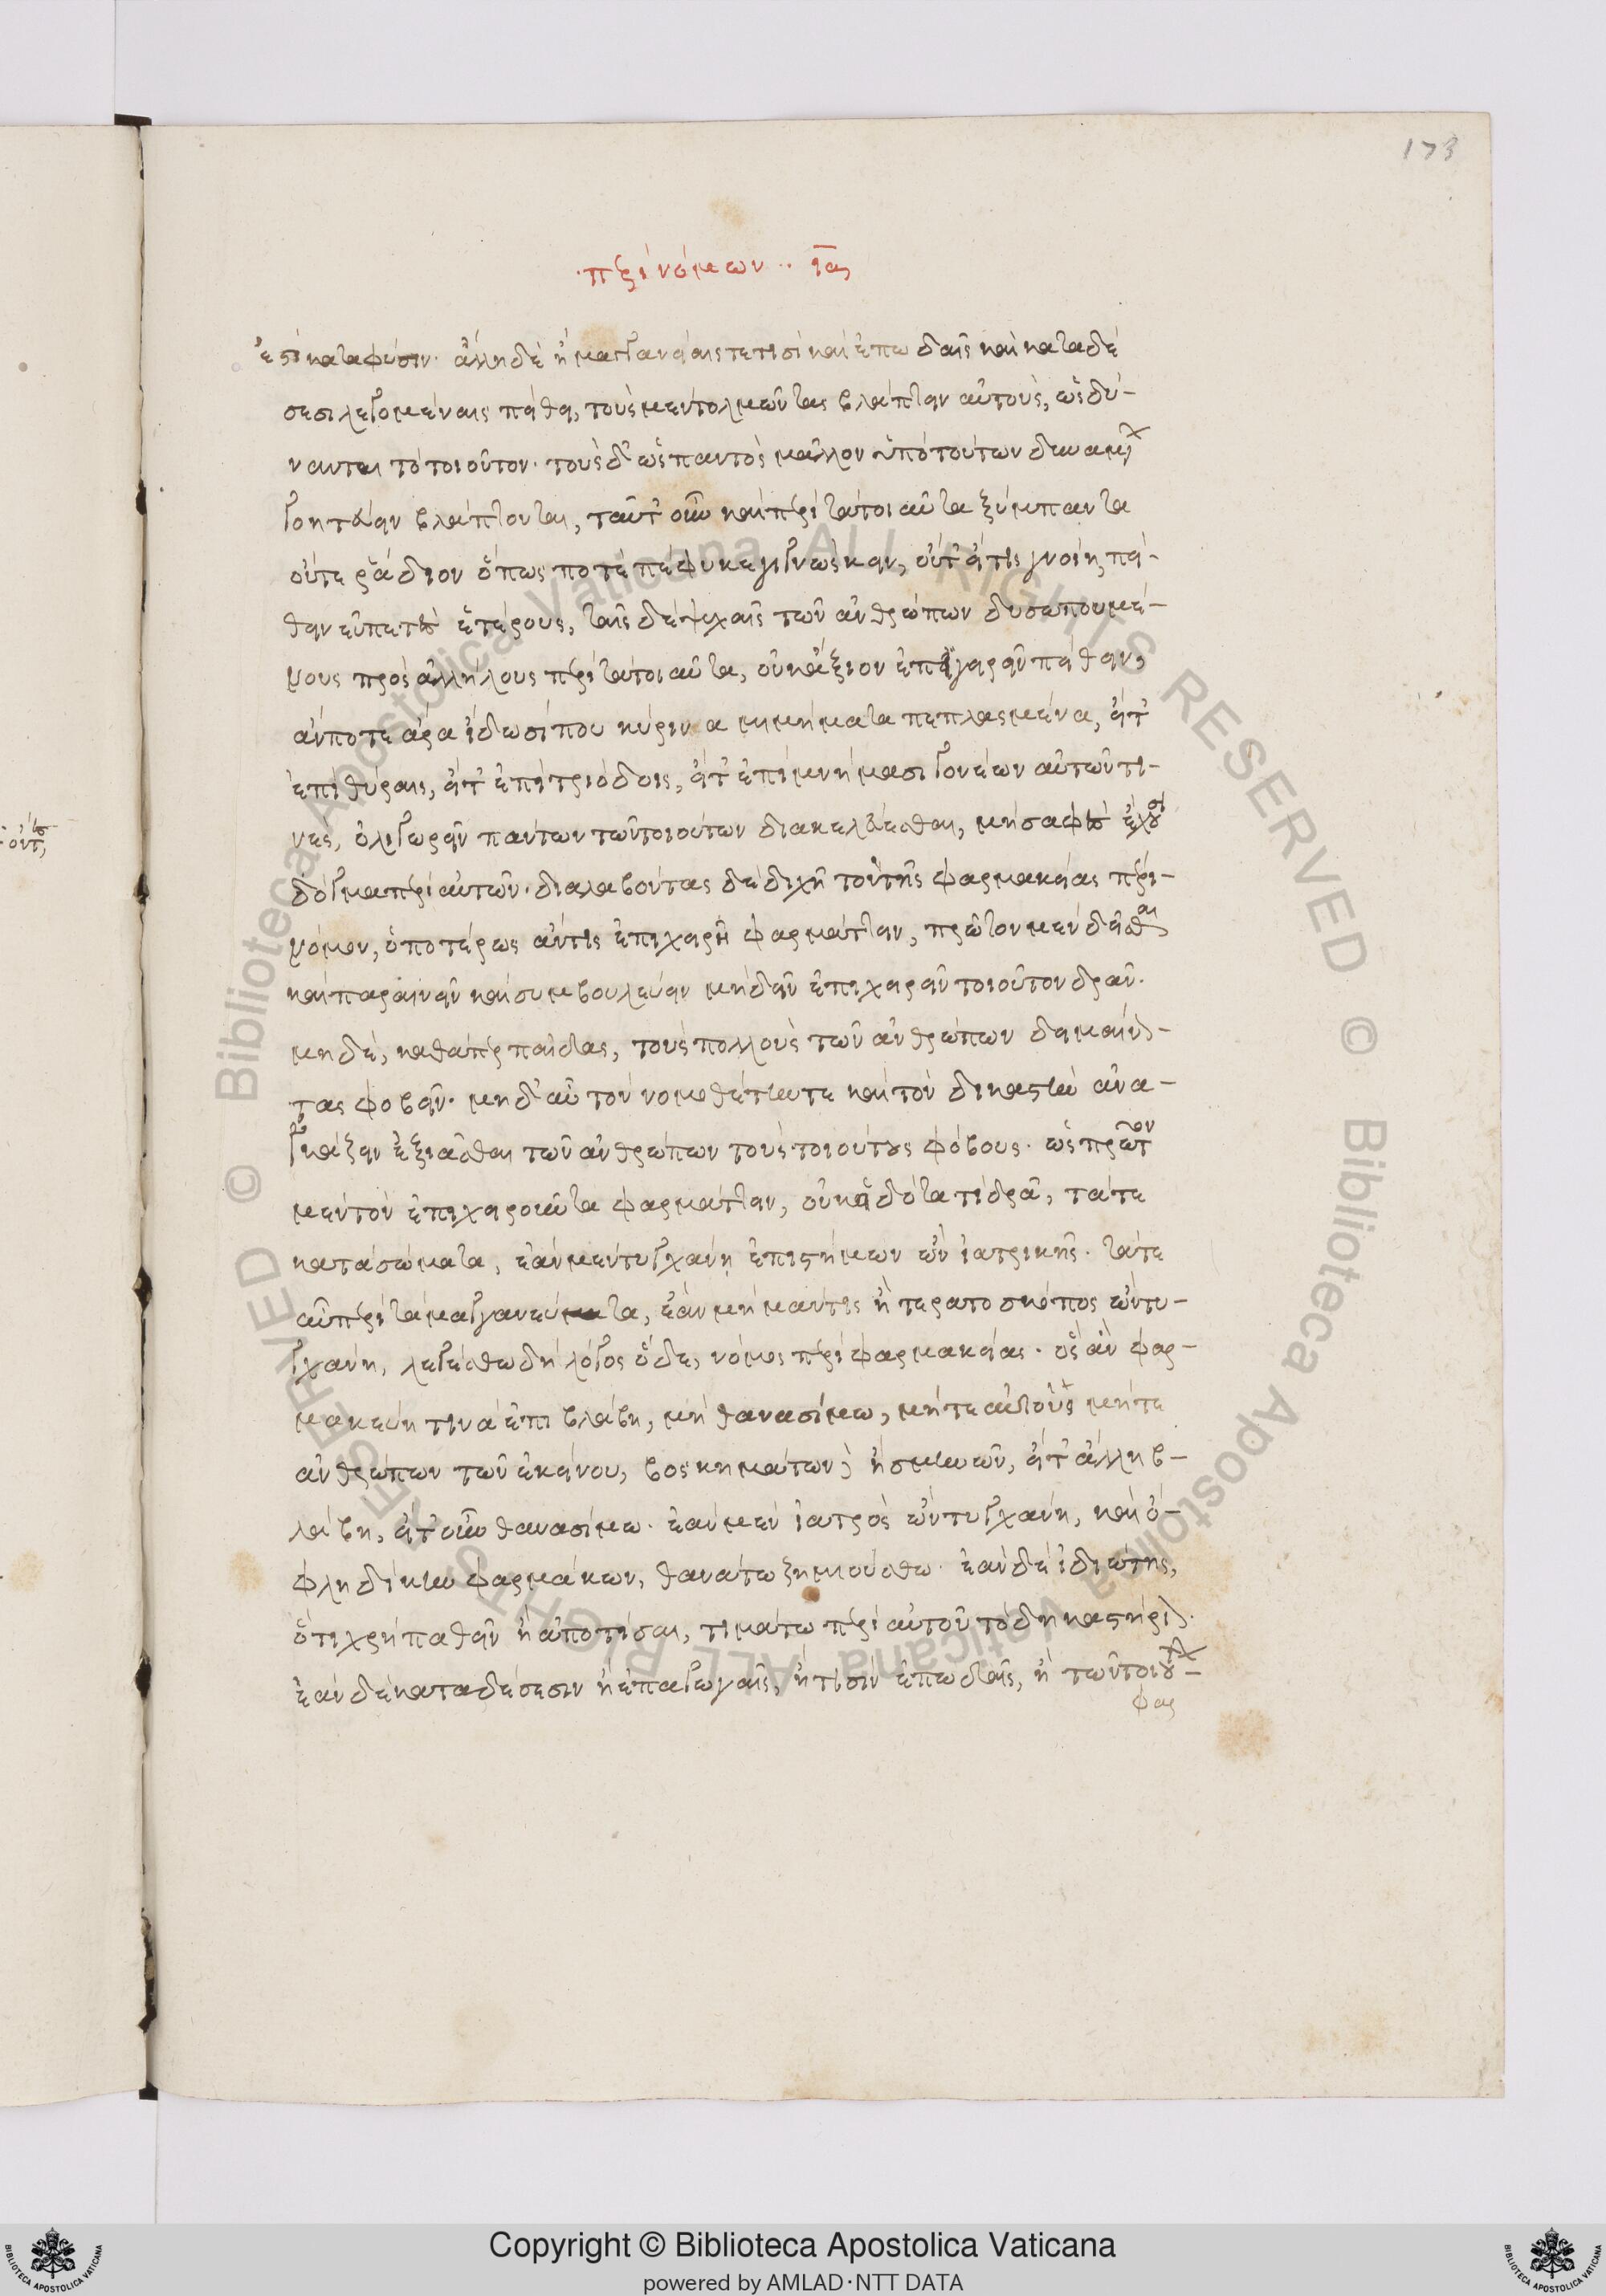 173
περὶ νόμων ια
ἐστὶ κατα φύσιν. ἄλλη δὲ ἣ μαγγανείαις τέ τισι καὶ ἐπωδαῖς καὶ καταδέ
σεσι λεγομέναις πείθει, τοὺς μὲν τολμῶντας βλάπτειν αὐτοὺς, ὡς δύ-
νανται τὸ τοιοῦτον. τοὺς δ' ὡς παντὸς μᾶλλον ὑπὸ τούτων δυναμέ
γοητεύειν βλάπτονται, ταῦτ' οὖν καὶ περὶ τὰ τοιαῦτα ξύμπαντα
οὔτε ῥᾴδιον ὅπως ποτὲ πέφυκε γιγνώσκειν, οὔτ' εἴ τις γνοίη, πεί-
θειν εὐπετὲς ἑτέρους, ταῖς δὲ ψυχαῖς τῶν ἀνθρώπων δυσωπουμέ-
νους πρὸς ἀλλήλους περὶ τὰ τοιαῦτα, οὐκ ἄξιον ἐπιχειρεῖν πείθειν,
ἄν ποτε ἄρα ἴδωσί που κήρινα μιμήματα πεπλασμένα, εἴτ'
ἐπὶ θύραις, εἴτ' ἐπὶ τριόδοις, εἴτ' ἐπὶ μνήμασι γονέων αὐτῶν τι-
νες, ὀλιγωρεῖν πάντων τῶν τοιούτων διακελεύεσθαι, μὴ σαφὲς ἔχουσι
δόγμα περὶ αὐτῶν. διαλαβόντας δὲ διχῆ τὸν τῆς φαρμακείας περι-
νόμον, ὁποτέρως ἄν τις ἐπιχειρῆ φαρμάττειν, πρῶτον μὲν δεῖσθαι
καὶ παραινεῖν καὶ συμβουλεύειν μὴ δεῖν ἐπιχειρεῖν τοιοῦτον δρᾶν.
μηδὲ, καθάπερ παῖδας, τοὺς πολλοὺς τῶν ἀνθρώπων δειμαίνον-
τας φοβεῖν. μηδ' αὖ τὸν νομοθέτην τε καὶ τὸν δικαστὴν ἀνα-
γκάζειν ἐξιᾶσθαι τῶν ἀνθρώπων τοὺς τοιούτους φόβους. ὡς πρῶτον
μὲν τὸν ἐπιχειροῦντα φαρμάττειν, οὐκ εἰδότα τί δρᾶ, τά τε
κατὰ σώματα, ἐὰν μὲν τυγχάνη ἐπιστήμων ὢν ἰατρικῆς. τά τε
αὖ περὶ τὰ μαγγανεύματα, ἐὰν μὴ μάντις ἢ τερατοσκόπος ὢν τυ-
γχάνη, λεγέσθω δὴ λόγος ὅδε, νόμος περὶ φαρμακείας. ὃς ἂν φαρ-
μακεύη τινὰ ἐπι βλάβη, μὴ θανασίμω, μήτε αὐτοῦ μήτε
ἀνθρώπων τῶν ἐκείνου, βοσκημάτων ἢ σμηνῶν, εἴτ' ἄλλη β-
λάβη, εἴτ' οὖν θανασίμω. ἐὰν μὲν ἰατρὸς ὢν τυγχάνη, καὶ ὄ-
φλη δίκην φαρμάκων, θανάτω ζημιούσθω. ἐὰν δὲ ἰδιώτης,
ὅτι χρὴ παθεῖν ἢ ἀποτίσαι, τιμάτω περὶ αὐτοῦ τὸ δικαστήριον.
ἐὰν δὲ καταδέσεσιν ἢ ἐπαγωγαῖς, ἤ τισιν ἐπωδαῖς, ἢ τῶν τοιούτων
φαρ